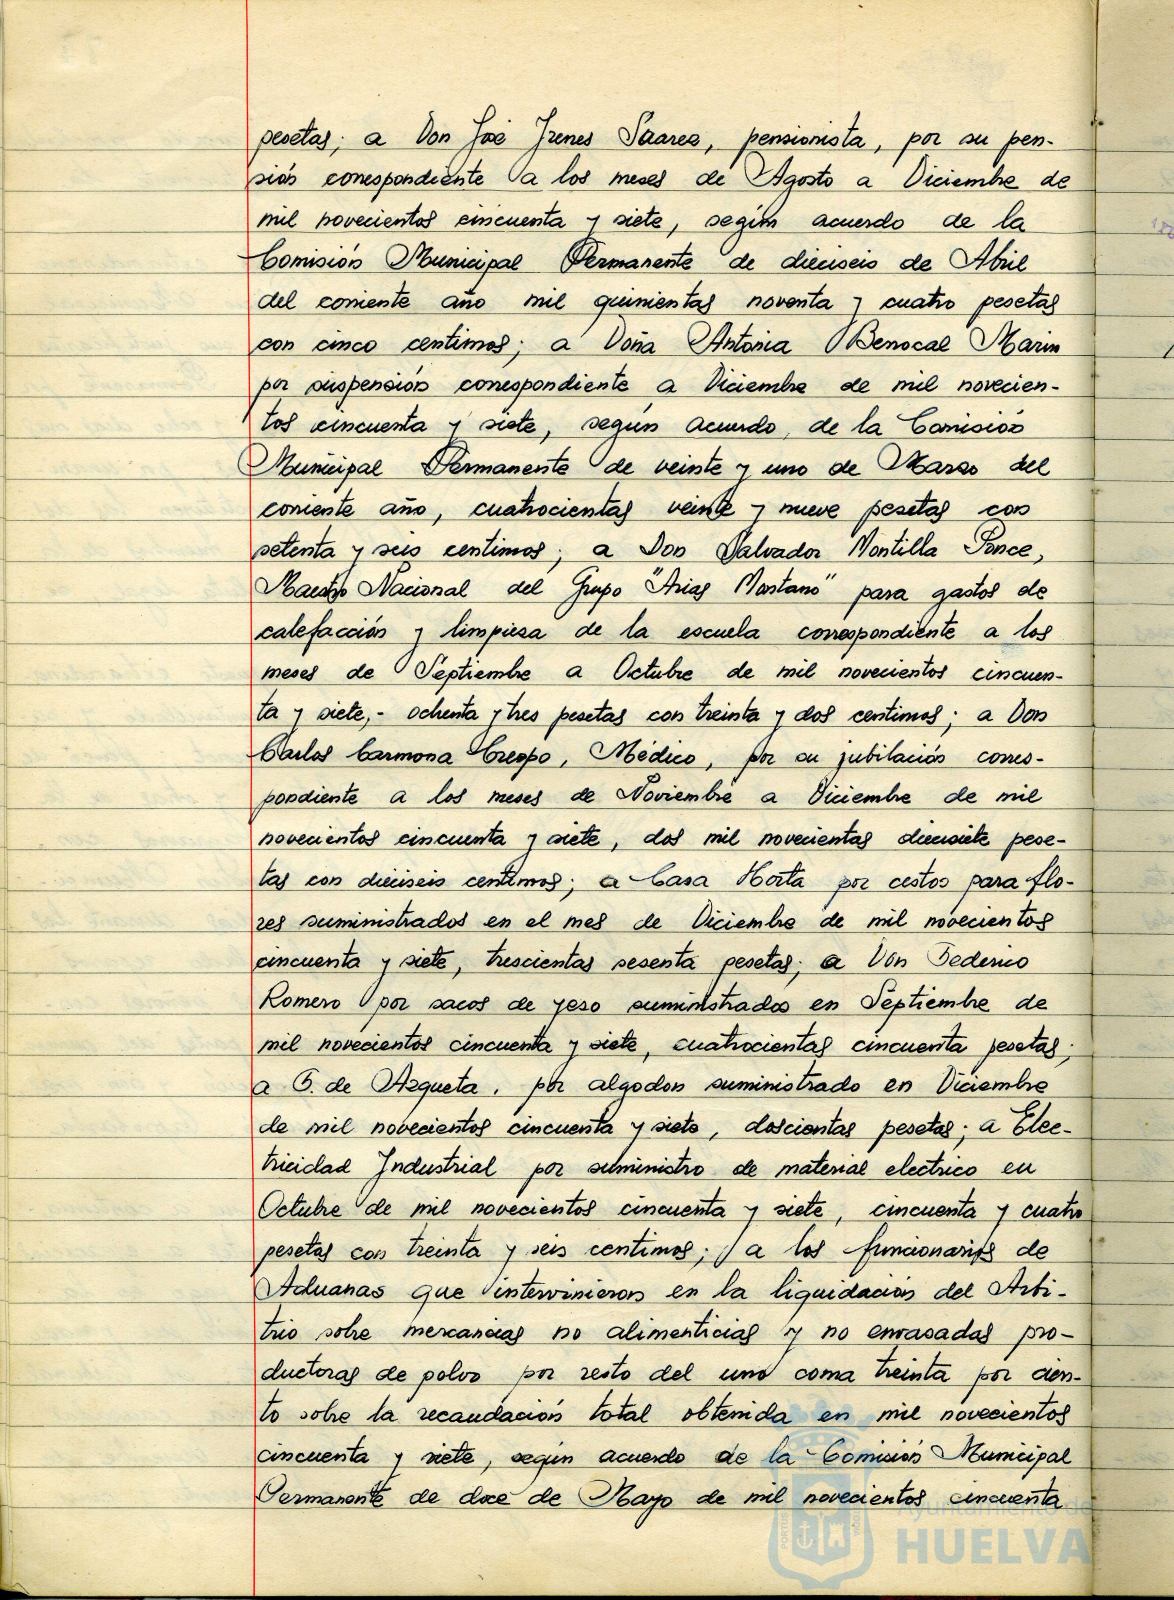 pesetas; a Don José Irenes Suarez, pensionista, por su pen-
sión correspondiente a los meses de Agosto a Diciembre de
mil novecientos cincuenta y siete, según acuerdo de la
Comisión Municipal Permanente de dieciseis de Abril
del corriente año mil quinientas noventa y cuatro pesetas
con cinco centimos; a Doña Antonia Berrocal Marin
por suspensión correspondiente a Diciembre de mil novecien-
tos cincuenta y siete, según acuerdo, de la Comisión
Municipal Permanente de veinte y uno de Marzo del
corriente año, cuatrocientas veinte y nueve pesetas con
setenta y seis centimos; a Don Salvador Montilla Ponce,
Maestro Nacional del Grupo "Arias Montano" para gastos de
calefacción y limpiesa de la escuela correspondiente a los
meses de Septiembre a Octubre de mil novecientos cincuen-
ta y siete,- ochenta y tres pesetas con treinta y dos centimos; a Don
Carlos Carmona Crespo, Médico, por su jubilación corres-
pondiente a los meses de Noviembre a Diciembre de mil
novecientos cincuenta y siete, dos mil novecientas diecisiete pese-
tas con dieciseis centimos; a Casa Horta por cestos para flo-
res suministrados en el mes de Diciembre de mil novecientos
cincuenta y siete, trescientas sesenta pesetas; a Don Federico
Romero por sacos de yeso suministrados en Septiembre de
mil novecientos cincuenta y siete, cuatrocientas cincuenta pesetas;
a G. de Azqueta, por algodon suministrado en Diciembre
de mil novecientos cincuenta y siete, doscientas pesetas; a Elec-
tricidad Industrial por suministro de material electrico en
Octubre de mil novecientos cincuenta y siete, cincuenta y cuatro
pesetas con treinta y seis centimos; a los funcionarios de
Aduanas que intervinieron en la liquidación del Arbi-
trio sobre mercancias no alimenticias y no envasadas pro-
ductoras de polvo por resto del uno coma treinta por cien-
to sobre la recaudación total obtenida en mil novecientos
cincuenta y siete, según acuerdo de la Comisión Municipal
Permanente de doce de Mayo de mil novecientos cincuenta
Ayuntamiento de
HUELVA